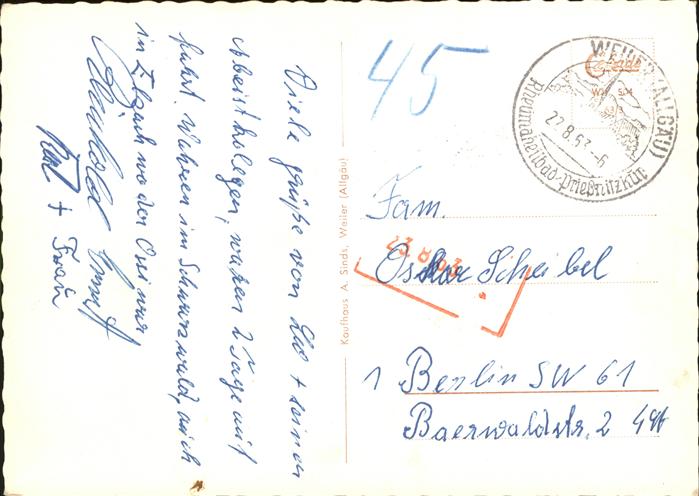 Viele grüße von Leo + seinen
Arbeitskolegen, waren 2 Tage auf
fahrt. Wahren im Schwarzwald, auch
in Elzach wo der Oni war
Reinhold
Karl + Frau
45
WEILER (ALLGÄU)
22.8.63.-6
Rheumaheilbad-Prießnitzkur
Cekade
Kaufhaus A. Sinds, Weiler (Allgäu)
23.8.63
Fam.
Oskar Scheibel
1 Berlin SW 61
Baerwaldstr. 2